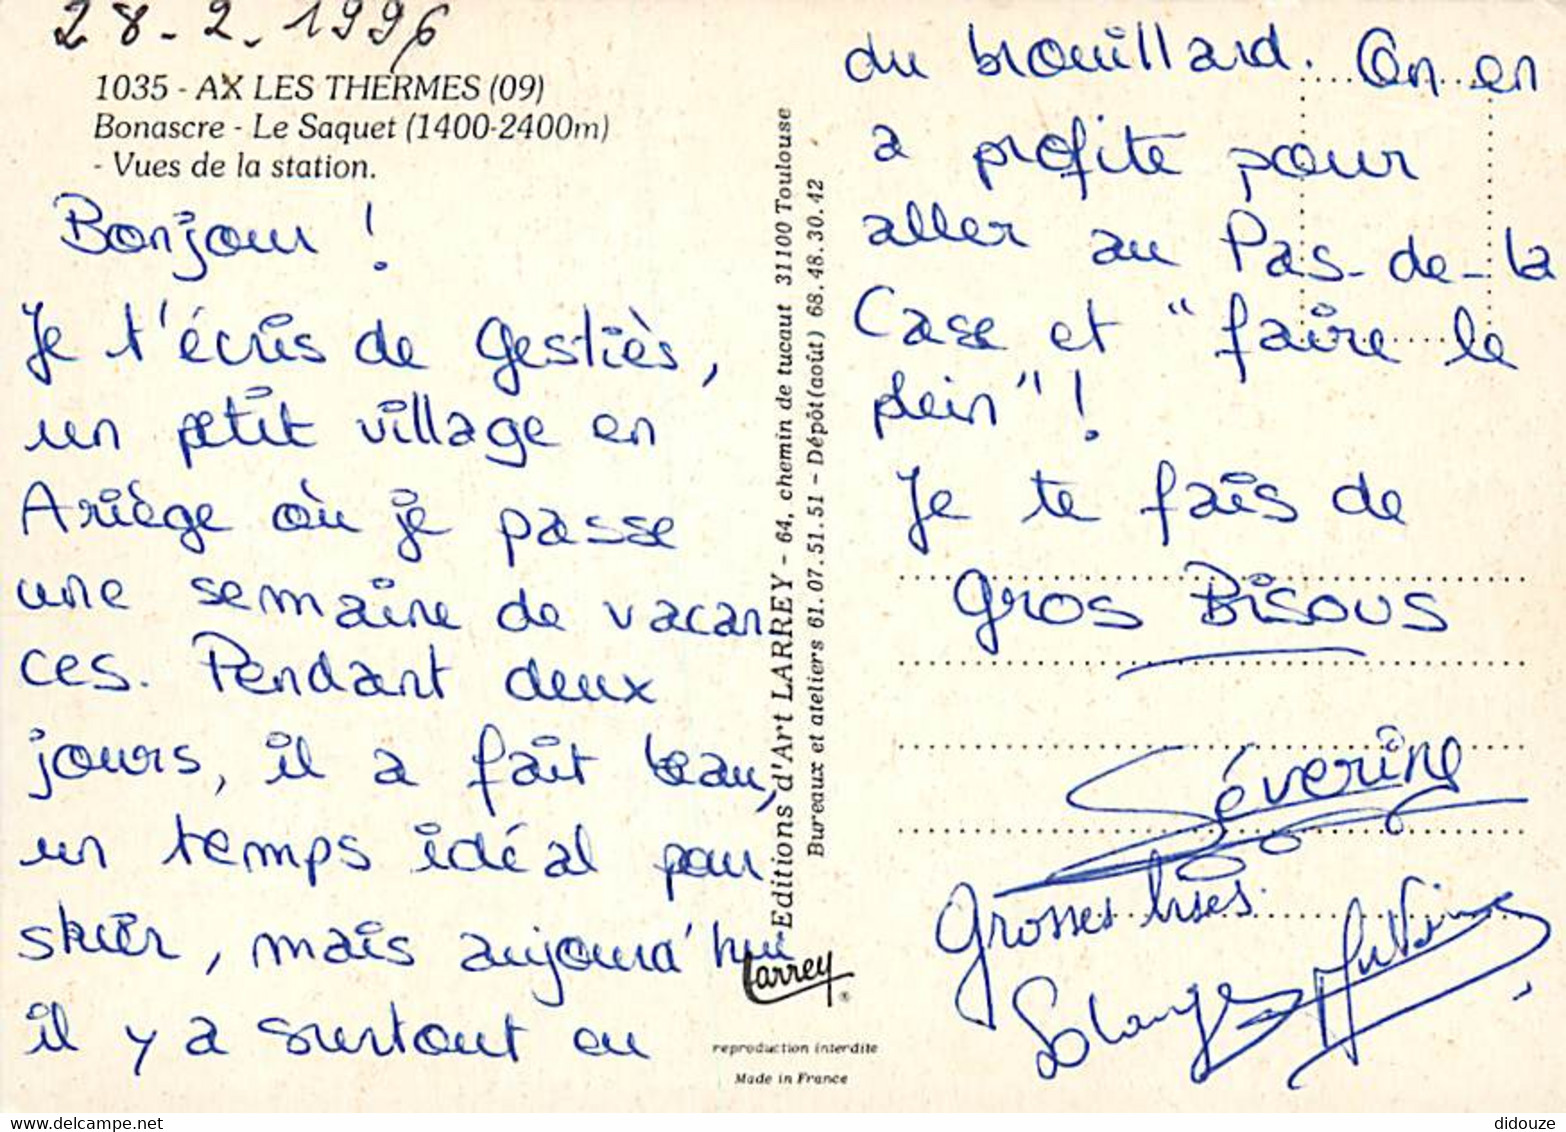 28-2.1996
1035 - AX LES THERMES (09)
Bonascre - Le Saquet (1400-2400m)
- Vues de la station.
Bonjour !
Je t'écris de Gestiès,
un petit village en
Ariège où je passe
une semaine de vacan
ces. Pendant deux
jours, il a fait beau,
un temps idéal pour
skier, mais aujourd'hui
il y a surtout eu
Editions d'Art LARREY - 64, chemin de tucaut 31100 Toulouse
Bureaux et ateliers 61.07.51.51 - Dépôt(août) 68.48.30.42
Larrey
reproduction interdite
Made in France
du brouillard. On en
a profité pour
aller au Pas-de-la
Case et "faire le
plein" !
Je te fais de
Gros Bisous
Séverine
Grosses bises.
Solange
didouze